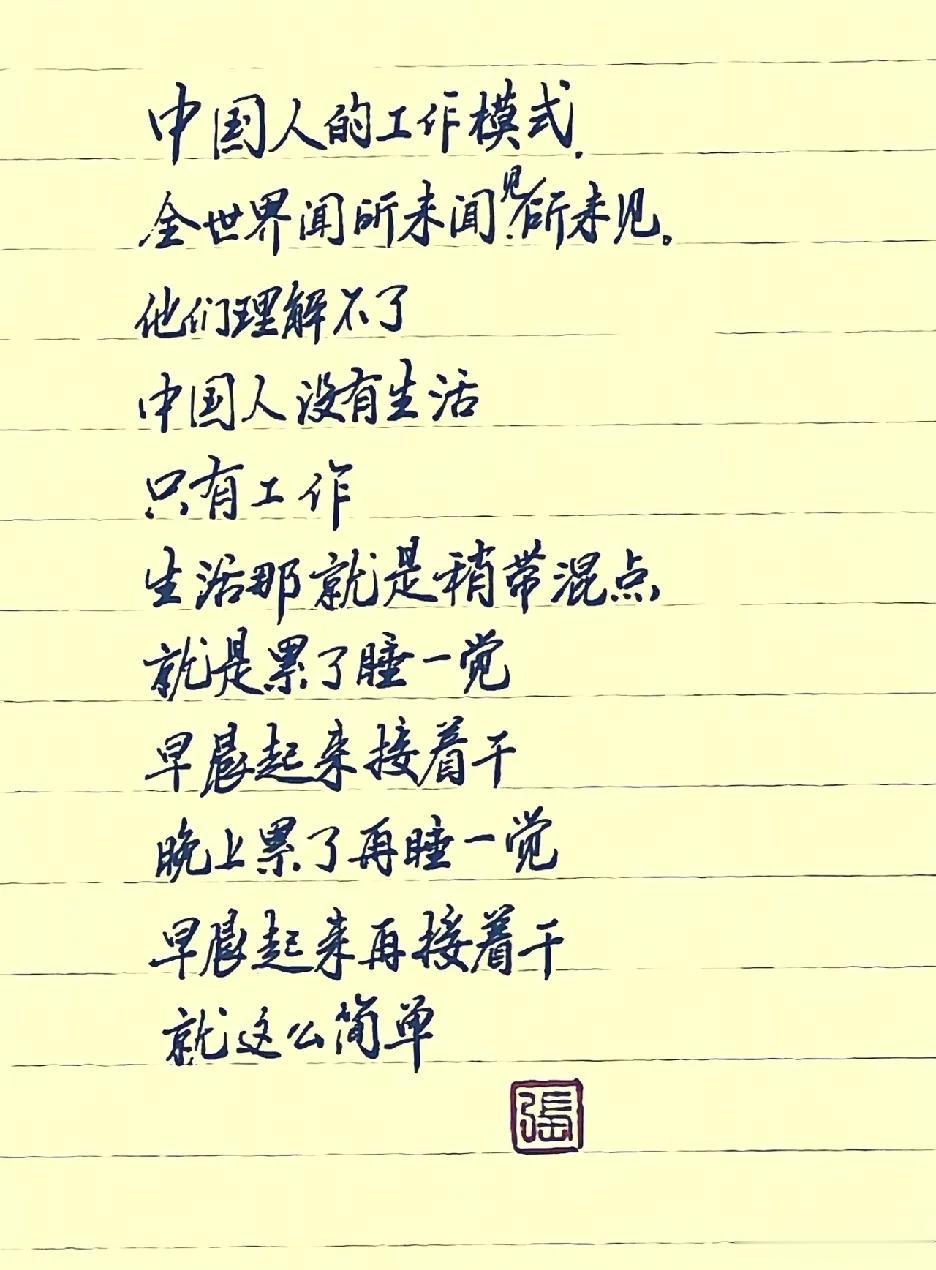 中国人的工作模式.
全世界闻所未闻.见所未见。
他们理解不了
中国人没有生活
只有工作
生活那就是稍带混点
就是累了睡一觉
早晨起来接着干
晚上累了再睡一觉
早晨起来再接着干
就这么简单
張